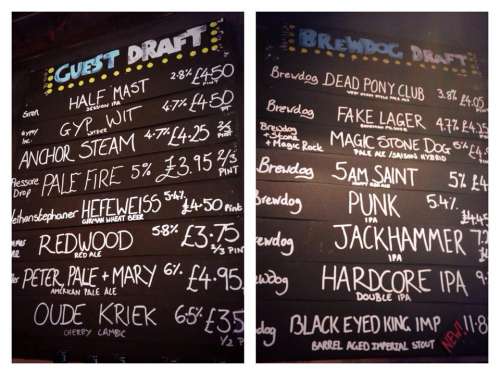 GUEST DRAFT
Siren HALF MAST 2.8% £4.50 PINT
SESSION IPA
GYP WIT 4.7% £4.50 PINT
Inc.
ANCHOR STEAM 4.7% £4.25 2/3
Pressure Drop PALE FIRE 5% £3.95 2/3 PINT
HEFEWEISS 5.4% £4.50 PINT
GERMAN WHEAT BEER
REDWOOD 5.8% £3.75 2/3 PINT
RED ALE
PETER, PALE + MARY 6% £4.95
AMERICAN PALE ALE
OUDE KRIEK 6.5% £35
CHERRY LAMBIC 1/2 P
BREWDOG DRAFT
Brewdog DEAD PONY CLUB 3.8% £4.05
Brewdog FAKE LAGER 4.7%
Brewdog + Stone + Magic Rock MAGIC STONE DOG
PALE ALE/SAISON HYBRID
Brewdog 5AM SAINT 5% £4
Brewdog PUNK 5.4%
IPA
JACKHAMMER
IPA
HARDCORE IPA 9.
DOUBLE IPA
BLACK EYED KING IMP 11.8
BARREL AGED IMPERIAL STOUT NEW!